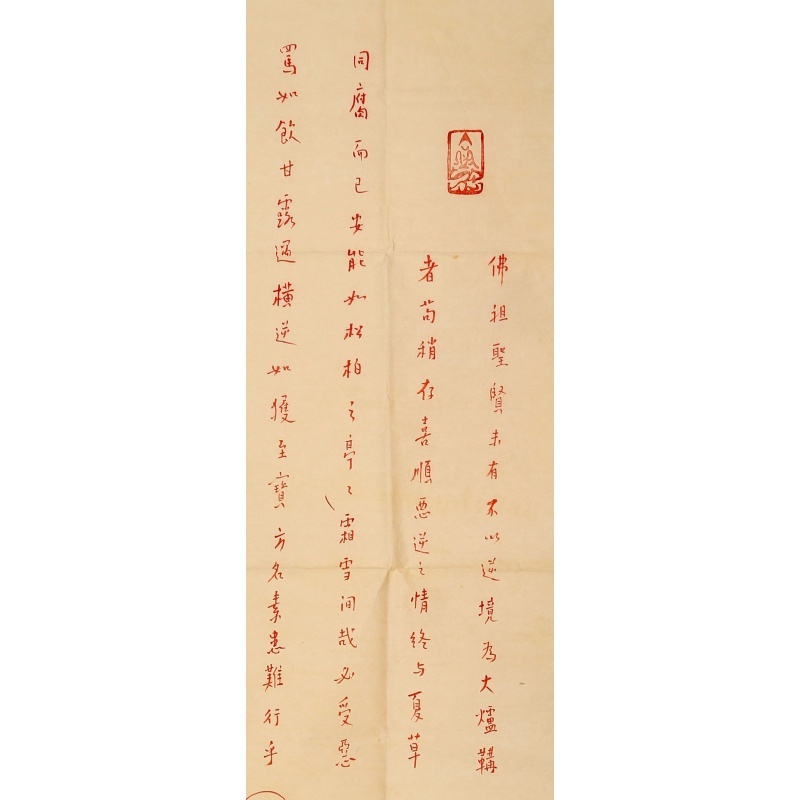 佛祖聖賢未有不以逆境為大爐鞲
者苟稍存喜順惡逆之情終与夏草
同腐而已安能如松柏之亭〻霜雪间哉必受惡
罵如飲甘露遇橫逆如獲至寶方名素患難行乎